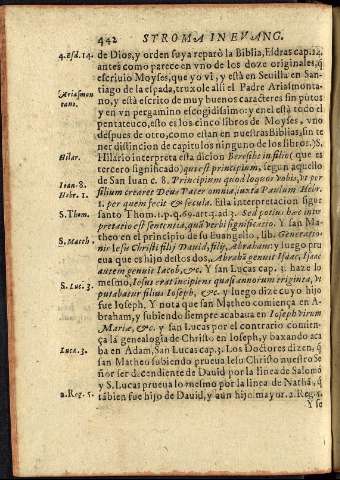 442 STROMA IN EVANG.
4. Esd. 14. de Dios, y orden suya reparò la Biblia, Esdras cap. 14.
antes como parece en vno de los doze originales, q̃
escriuio Moyses, que yo vi, y està en Seuilla en San-
Arias mon tiago de la espada, truxole alli el Padre Arias monta-
tano. no, y està escrito de muy buenos caracteres sin pũtos
y en vn pergamino escogidissimo: y en el està todo el
pentateuco, esto es los cinco libros de Moyses, vno
despues de otro, como estan en nuestras Biblias, sin te
ner distincion de capitulos ninguno de los libros. S.
Hilar. Hilario interpreta esta dicion Beresihc in filio (que es
tercero significado) que est principium, segun aquello
Ioan. 8. de San Iuan c. 8. Principium quod loquor vobis, vt per
Hebr. 1. filium crearet Deus Pater omnia, iuxta Paulum Hebr.
1. per quem fecit & secula. Esta interpretacion sigue
S. Thom. santo Thom. 1. p. q. 69. art. 4. ad 3. Sed potius hæc inter
pretatio est sententia, quã verbi significatio. Y san Ma
S. Matth. theo en el principio de su Euangelio, lib. Generatio-
nis Iesu Christi filij Dauid, filij, Abraham: y luego pru
eua que es hijo destos dos, Abrahã genuit Isaac, Isaac
autem genuit Iacob, &c. Y san Lucas cap. 3. haze lo
S. Luc. 3. mesmo, Iesus erat incipiens quasi annorum triginta, vt
putabatur filius Ioseph, &c. y luego dize cuyo hijo
fue Ioseph. Y nota que san Matheo comiença en A-
braham, y subiendo siempre acabaua en Ioseph virum
Mariæ, &c. y san Lucas por el contrario comien-
ça la genealogia de Christo en Ioseph, y baxando aca
Luca. 3. ba en Adam, San Lucas cap. 3. Los Doctores dizen, q̃
san Matheo subiendo prueua Iesu Christo nuestro Se
ñor ser decendiente de Dauid por la linea de Salomõ
y S. Lucas prueua lo mesmo por la linea de Nathã, q̃
2. Reg. 5. tãbien fue hijo de Dauid, y aun hijo mayor. 2. Reg. 5.
Y se